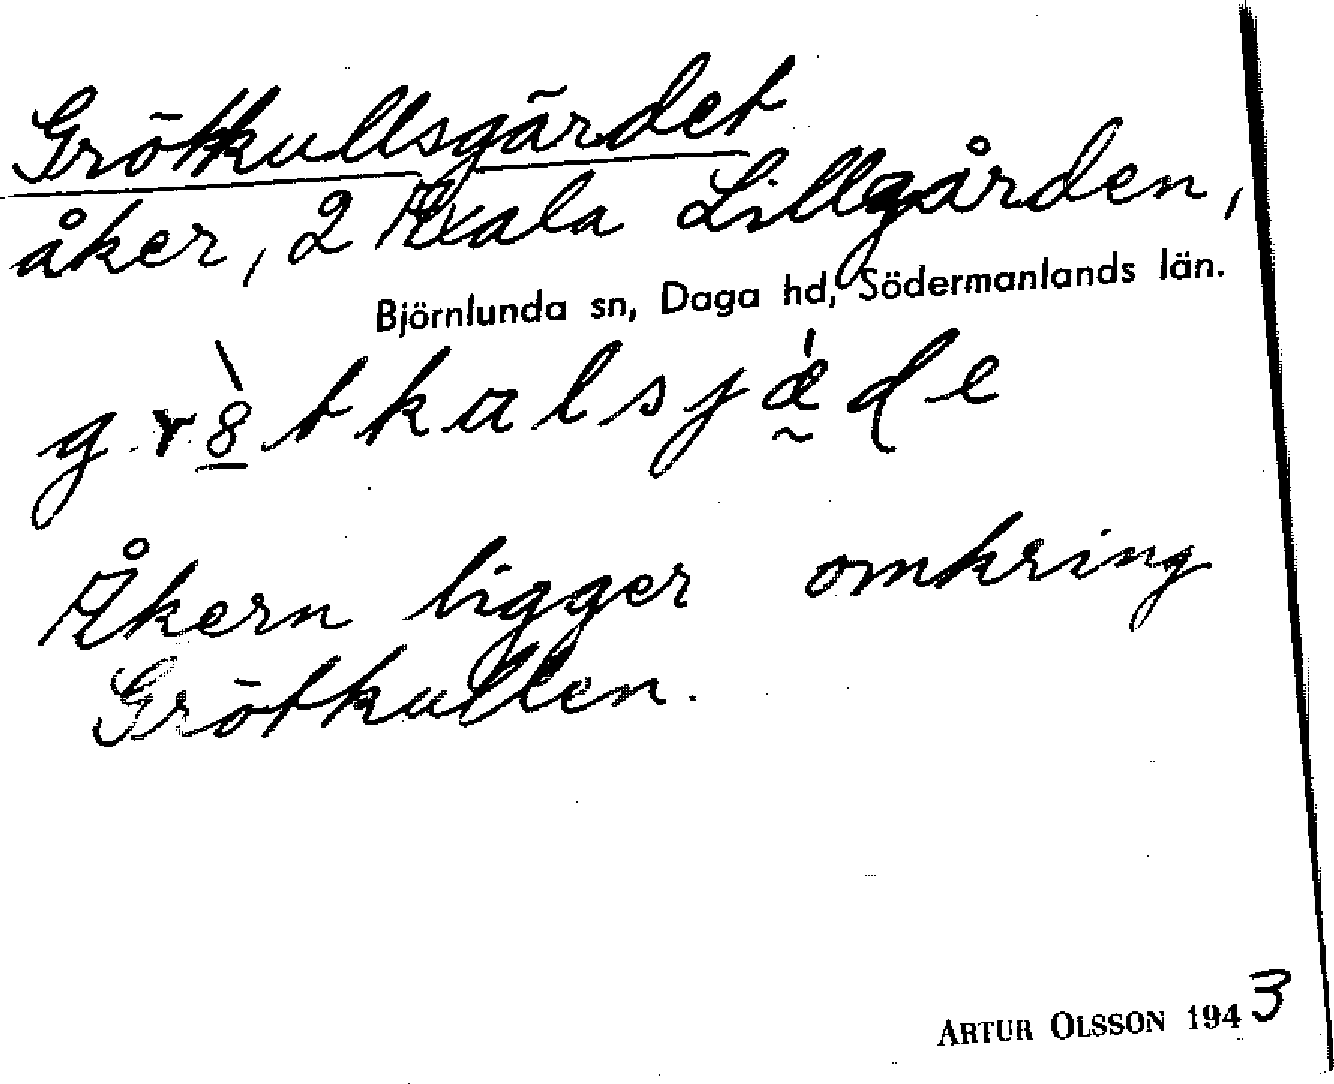 Grötkullsgärdet
åker, 2 Axala Lillgården,
Björnlunda sn, Daga hd, Södermanlands län.
grò̱tkulsjǽ̰de
Åkern ligger omkring
Grötkullen.
ARTUR OLSSON 1943